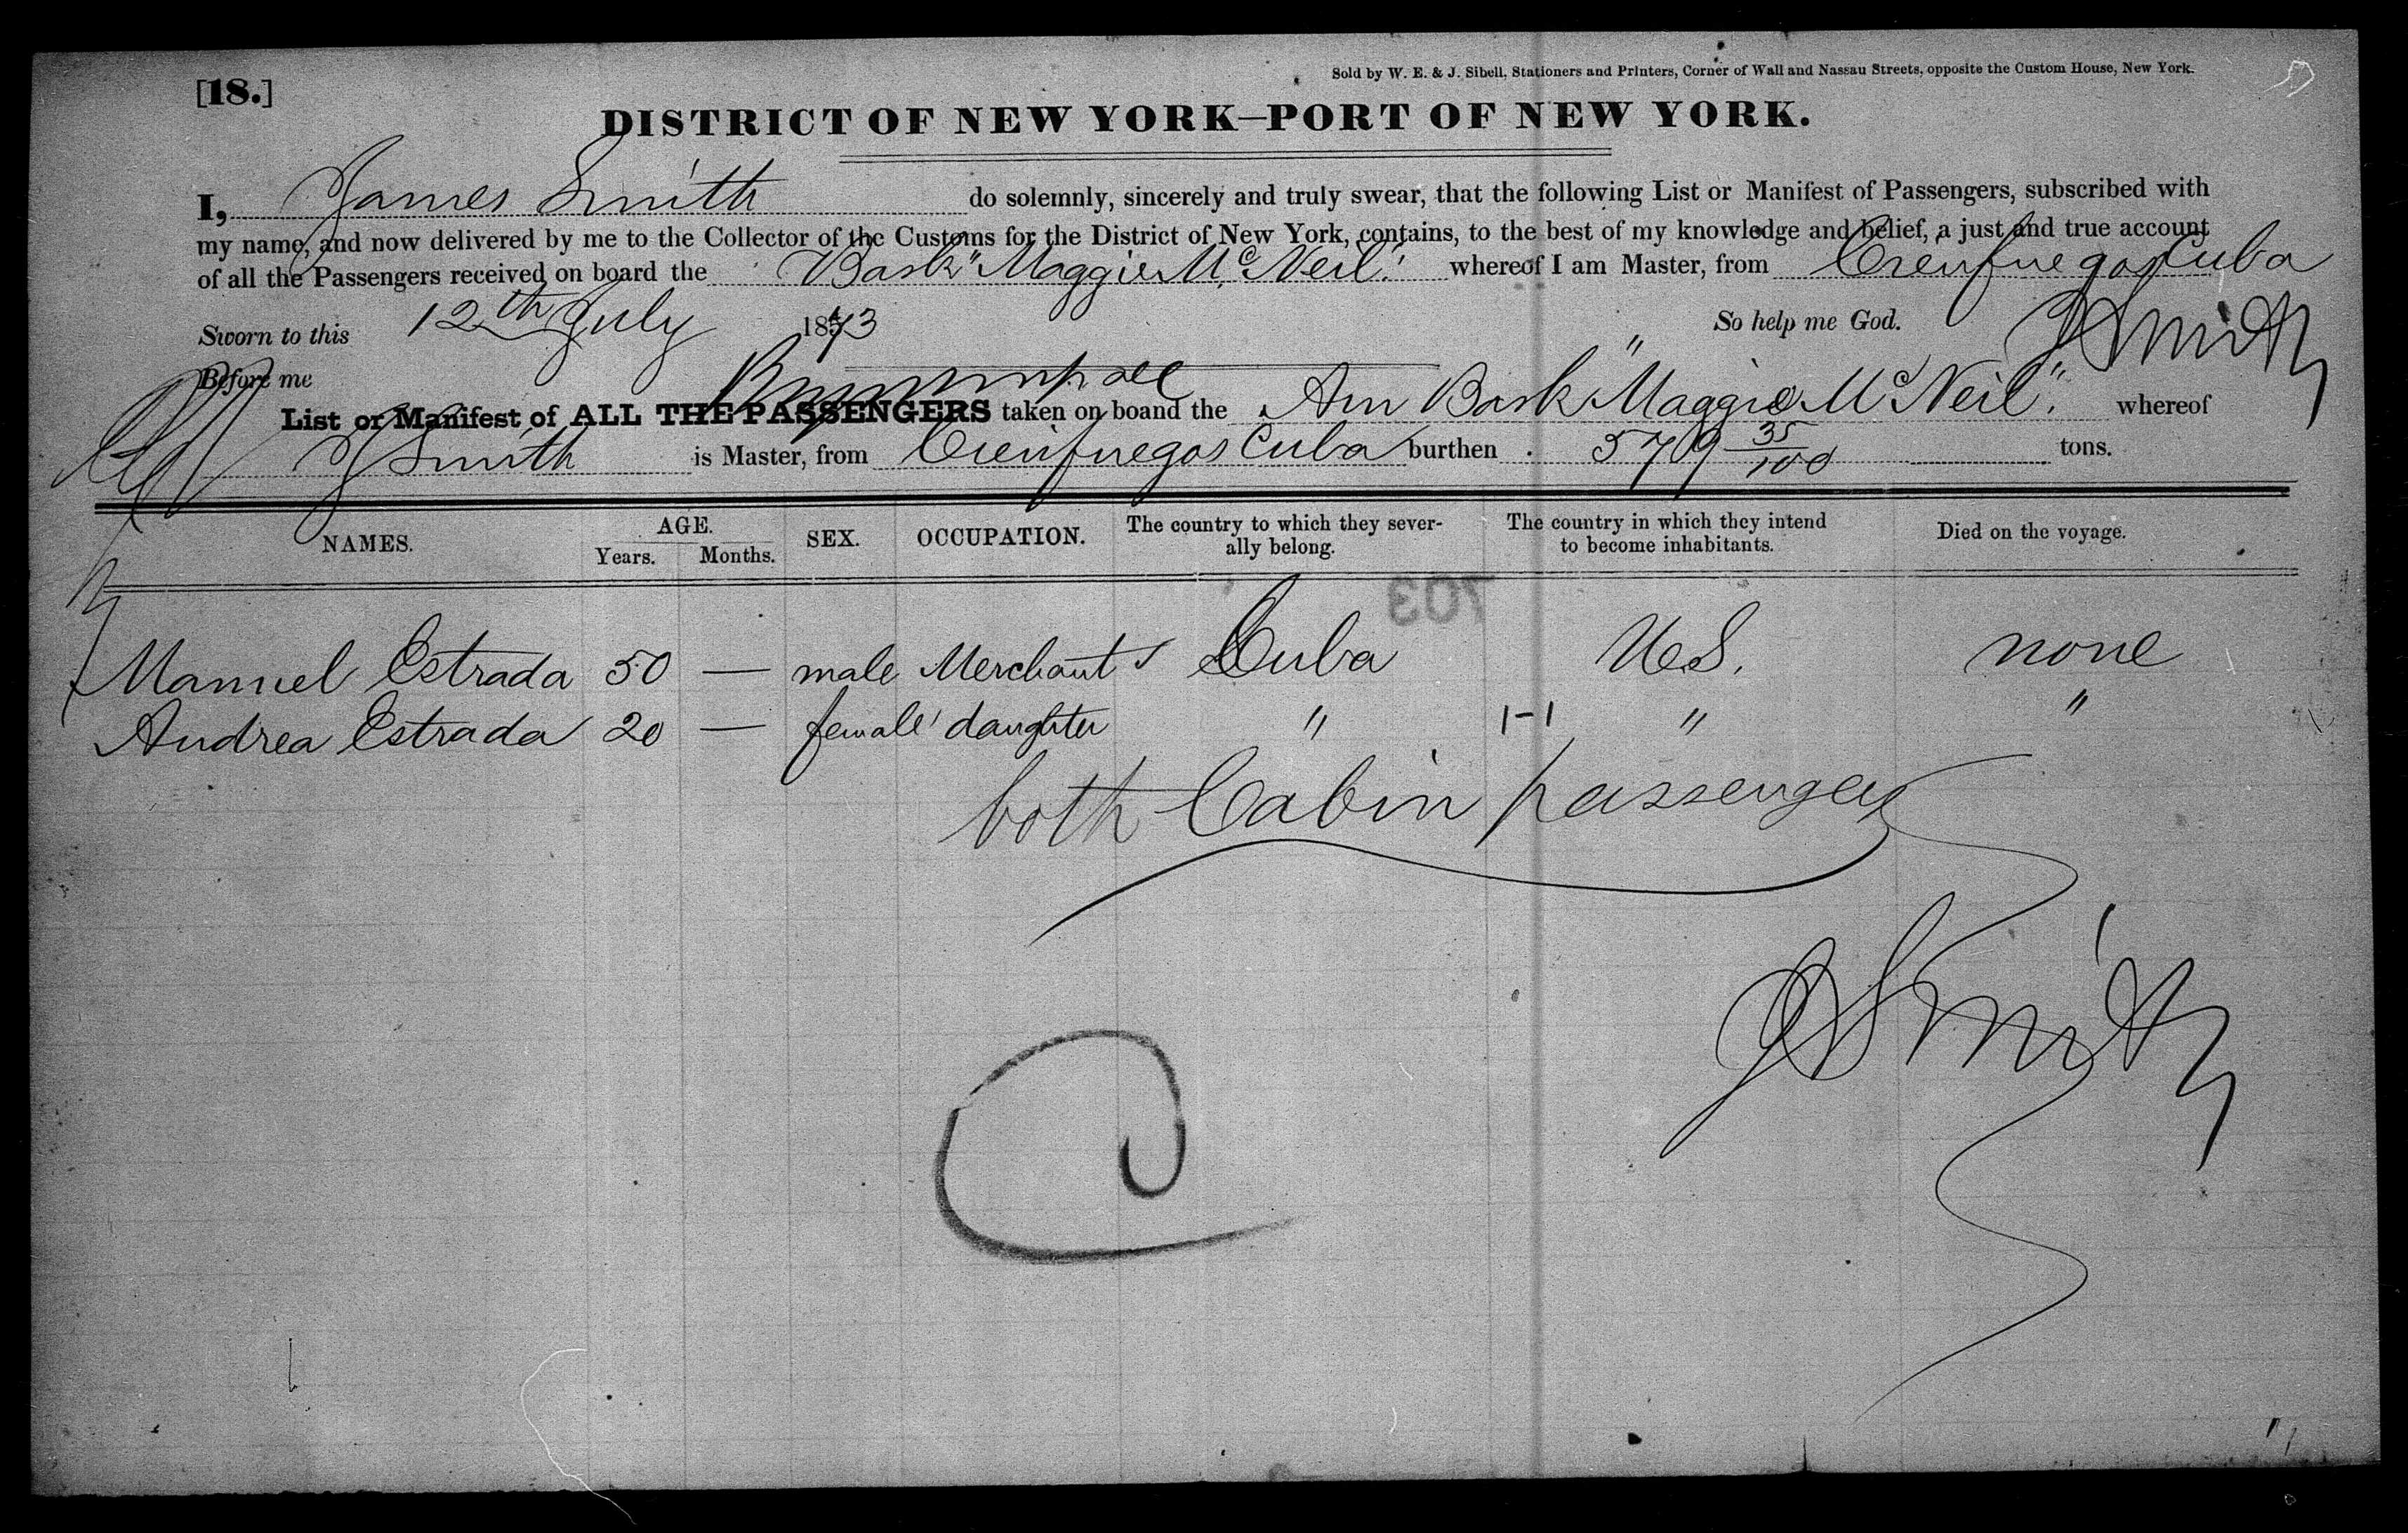 Sold by W. E. & J. Sibell, Stationers and Printers, Corner of Wall and Nassau Streets, opposite the Custom House, New York.
[18.]
DISTRICT OF NEW YORK—PORT OF NEW YORK.
I, James Smith do solemnly, sincerely and truly swear, that the following List or Manifest of Passengers, subscribed with
my name, and now delivered by me to the Collector of the Customs for the District of New York, contains, to the best of my knowledge and belief, a just and true account
of all the Passengers received on board the Bark "Maggie McNeil" whereof I am Master, from Cienfuegos Cuba
Sworn to this 12th July 1873 So help me God. J Smith
Before me
List or Manifest of ALL THE PASSENGERS taken on boand the Am Bark "Maggie McNeil" whereof
J Smith is Master, from Cienfuegos Cuba burthen 579 35/100 tons.
NAMES. AGE. Years. Months. SEX. OCCUPATION. The country to which they severally belong. The country in which they intend to become inhabitants. Died on the voyage.
703
Manuel Estrada 50 — male Merchant Cuba U.S. none
Andrea Estrada 20 — female daughter " 1-1 " "
both Cabin passengers
J Smith